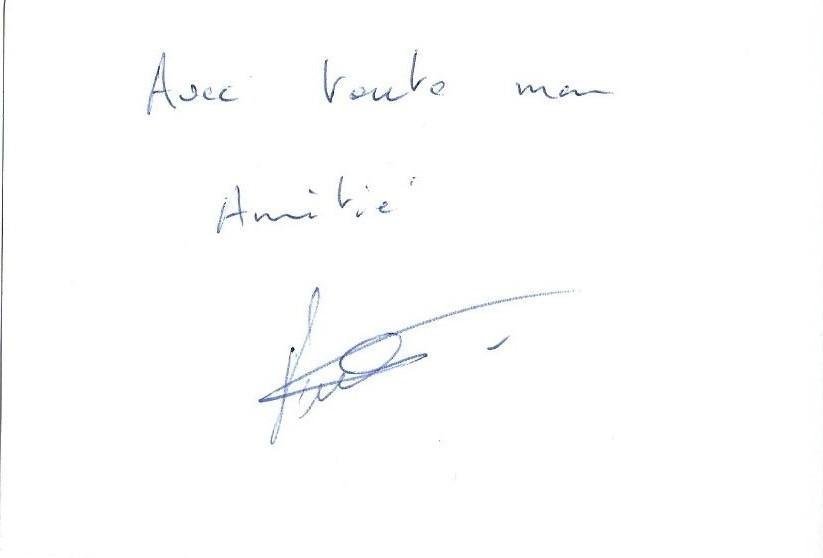 Avec toute mon
Amitié